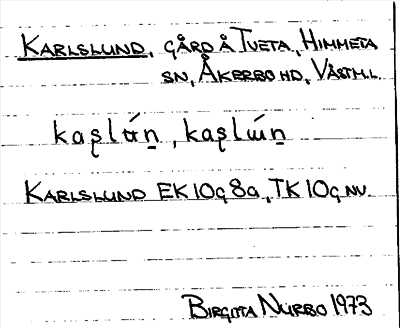 KARLSLUND, GÅRD Å TVETA, HIMMETA
SN, ÅKERBO HD, VÄSTM.L.
kaʂlɷ́ṉ, kaʂlɯ́ṉ
KARLSLUND EK 10G 8a, TK 10G NV.
BIRGITTA NÜRBO 1973